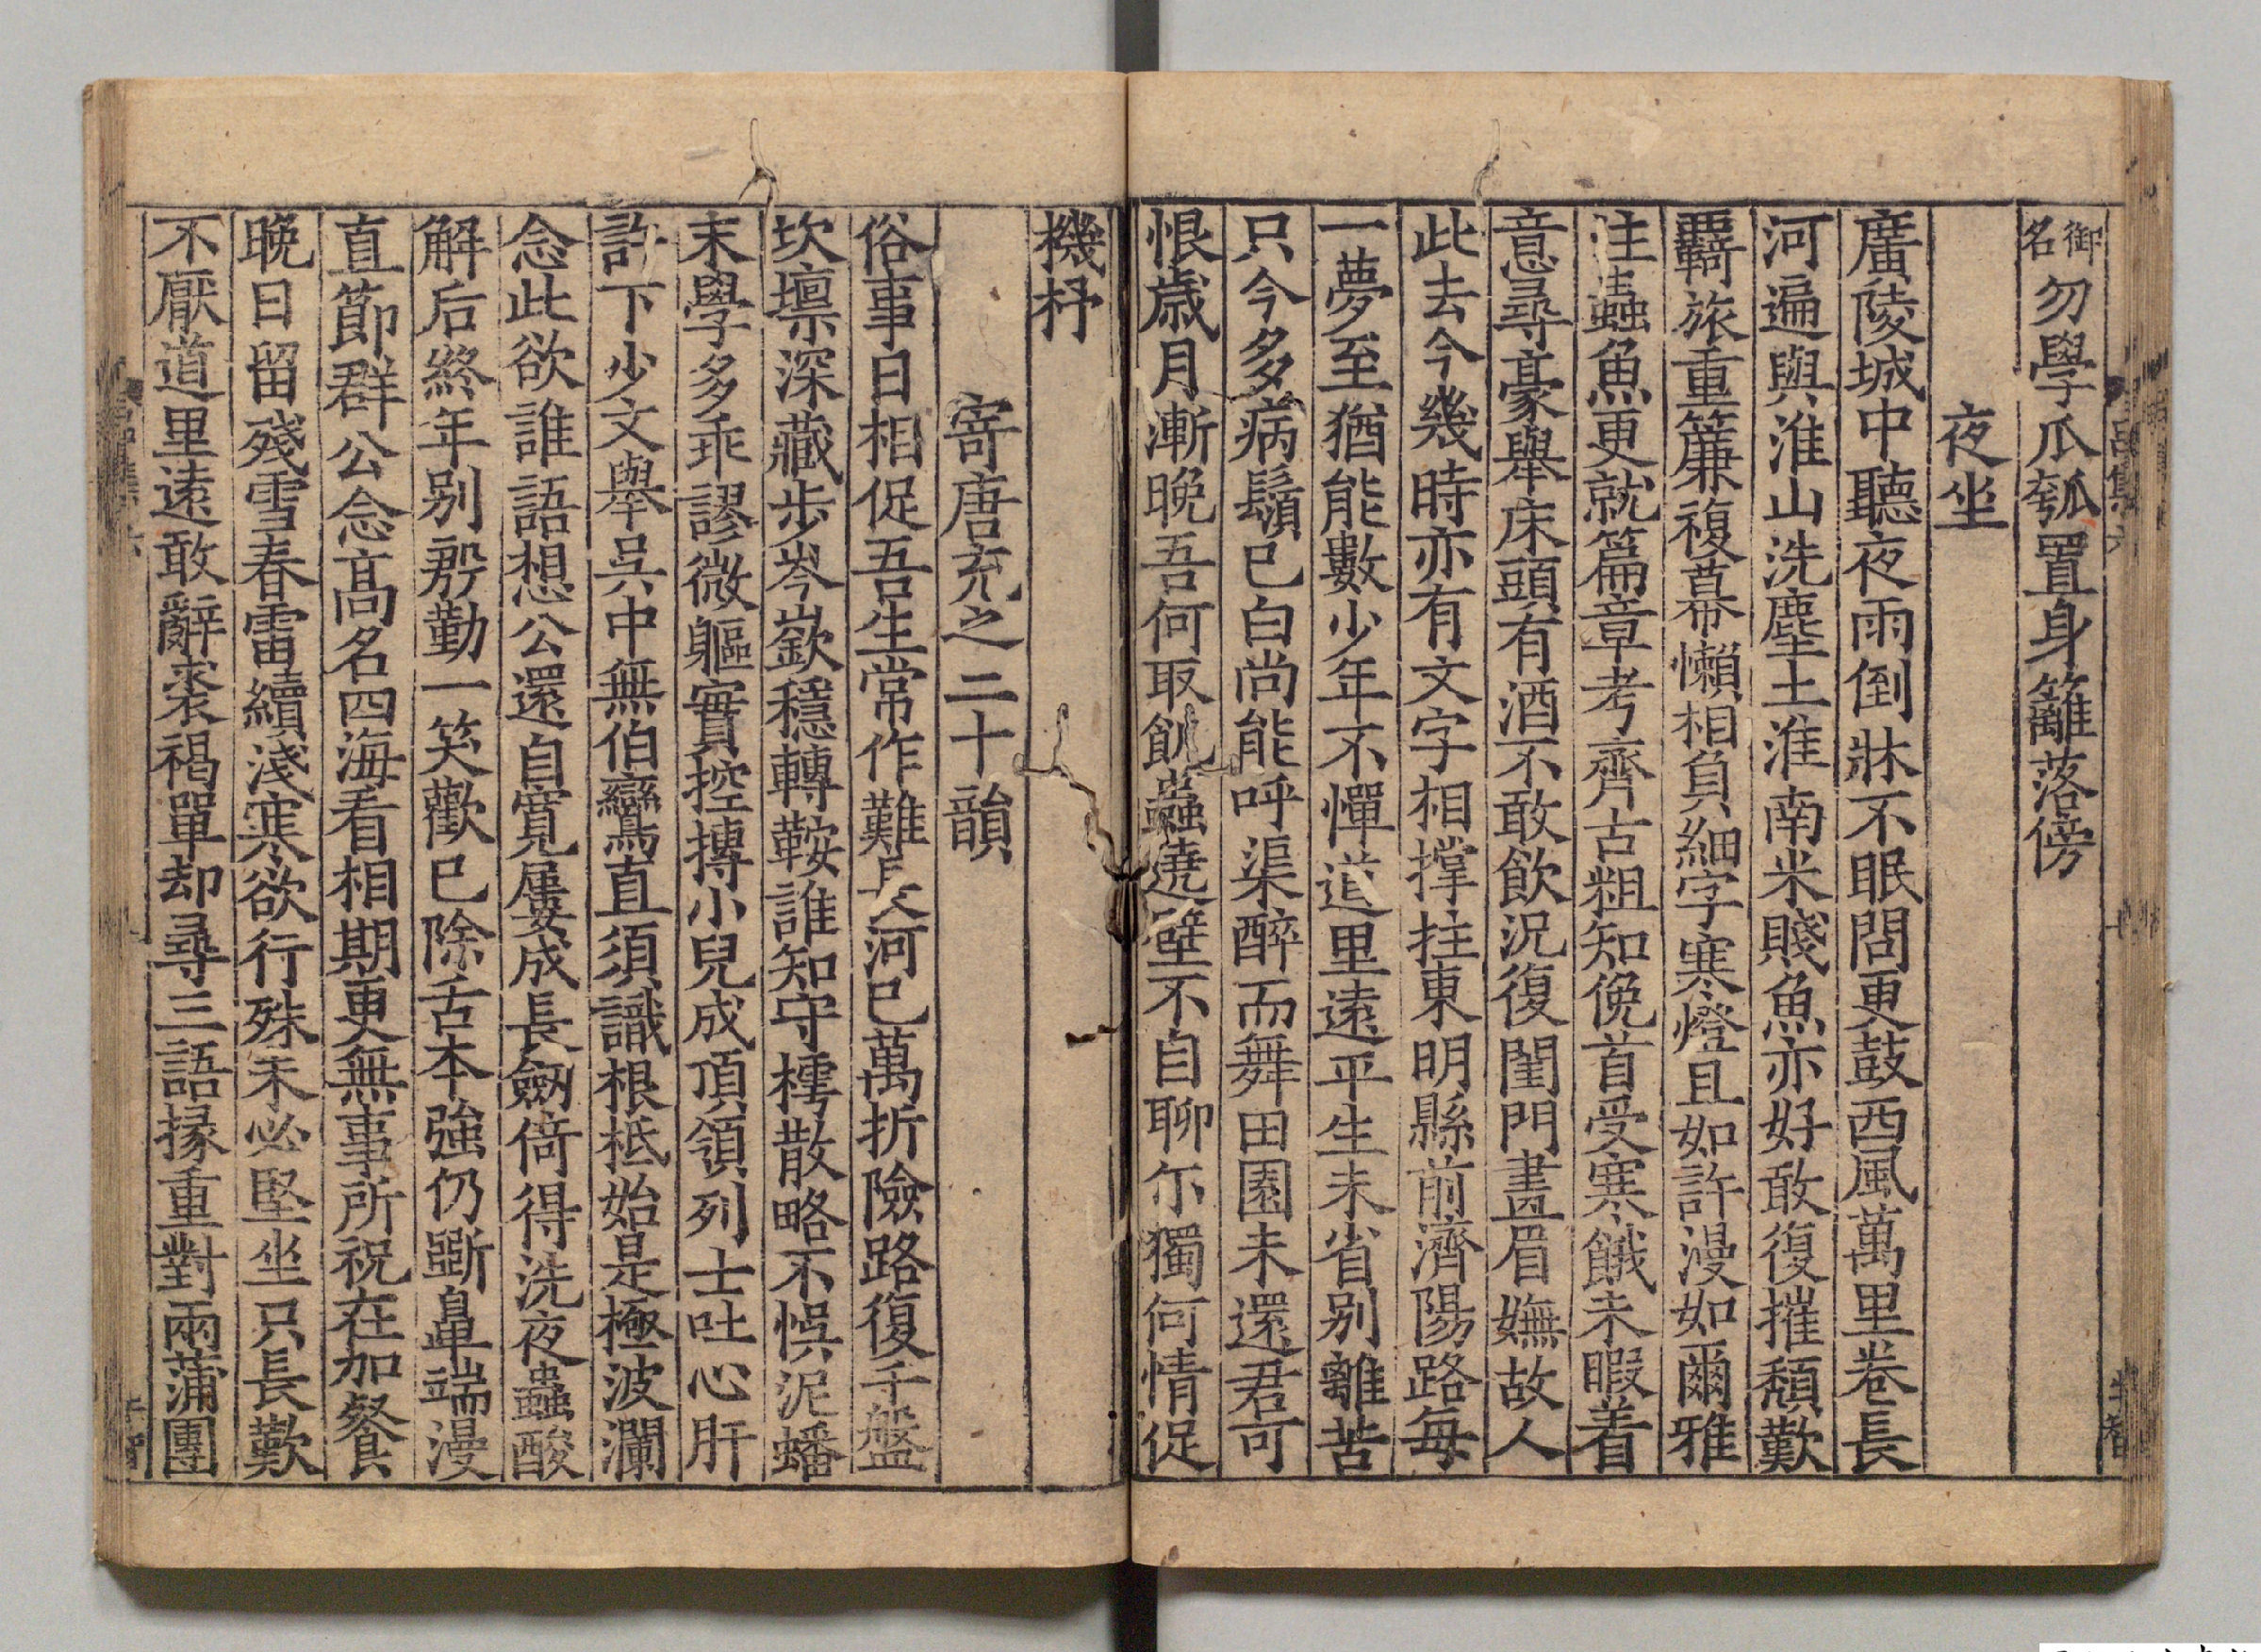 御名勿學瓜瓠置身籬落傍
夜坐
廣陵城中聽夜雨倒牀不眠問更鼓西風萬里卷長
河遍與淮山洗塵土淮南米賤魚亦好敢復摧頹歎
覉旅重簾複幕懶相負細字寒燈且如許漫如爾雅
注蟲魚更就篇章考齊古粗知俛首受寒餓未暇着
意尋豪舉床頭有酒不敢飲況復閨門畫眉嫵故人
此去今幾時亦有文字相撑拄東明縣前濟陽路每
一夢至猶能數少年不憚道里遠平生未省别離苦
只今多病鬚已白尚能呼渠醉而舞田園未還君可
恨歳月漸晚吾何取飢蟲遶壁不自聊尓獨何情促
機杼
寄唐充之二十韻
俗事日相促吾生常作難長河已萬折險路復千盤
坎壈深藏步岑嶔穩轉鞍誰知守樗散略不悞泥蟠
末學多乖謬微軀實控摶小兒成頂領列士吐心肝
許下少文舉吳中無伯鸞直須識根柢始是極波瀾
念此欲誰語想公還自寛屢成長劒倚得洗夜蟲酸
解后終年别慇勤一笑歡已除舌本強仍斵鼻端漫
直節群公念高名四海看相期更無事所祝在加餐
晚日留殘雪春雷續淺寒欲行殊未必堅坐只長歎
不厭道里遠敢辭裘褐單却尋三語掾重對兩蒲團